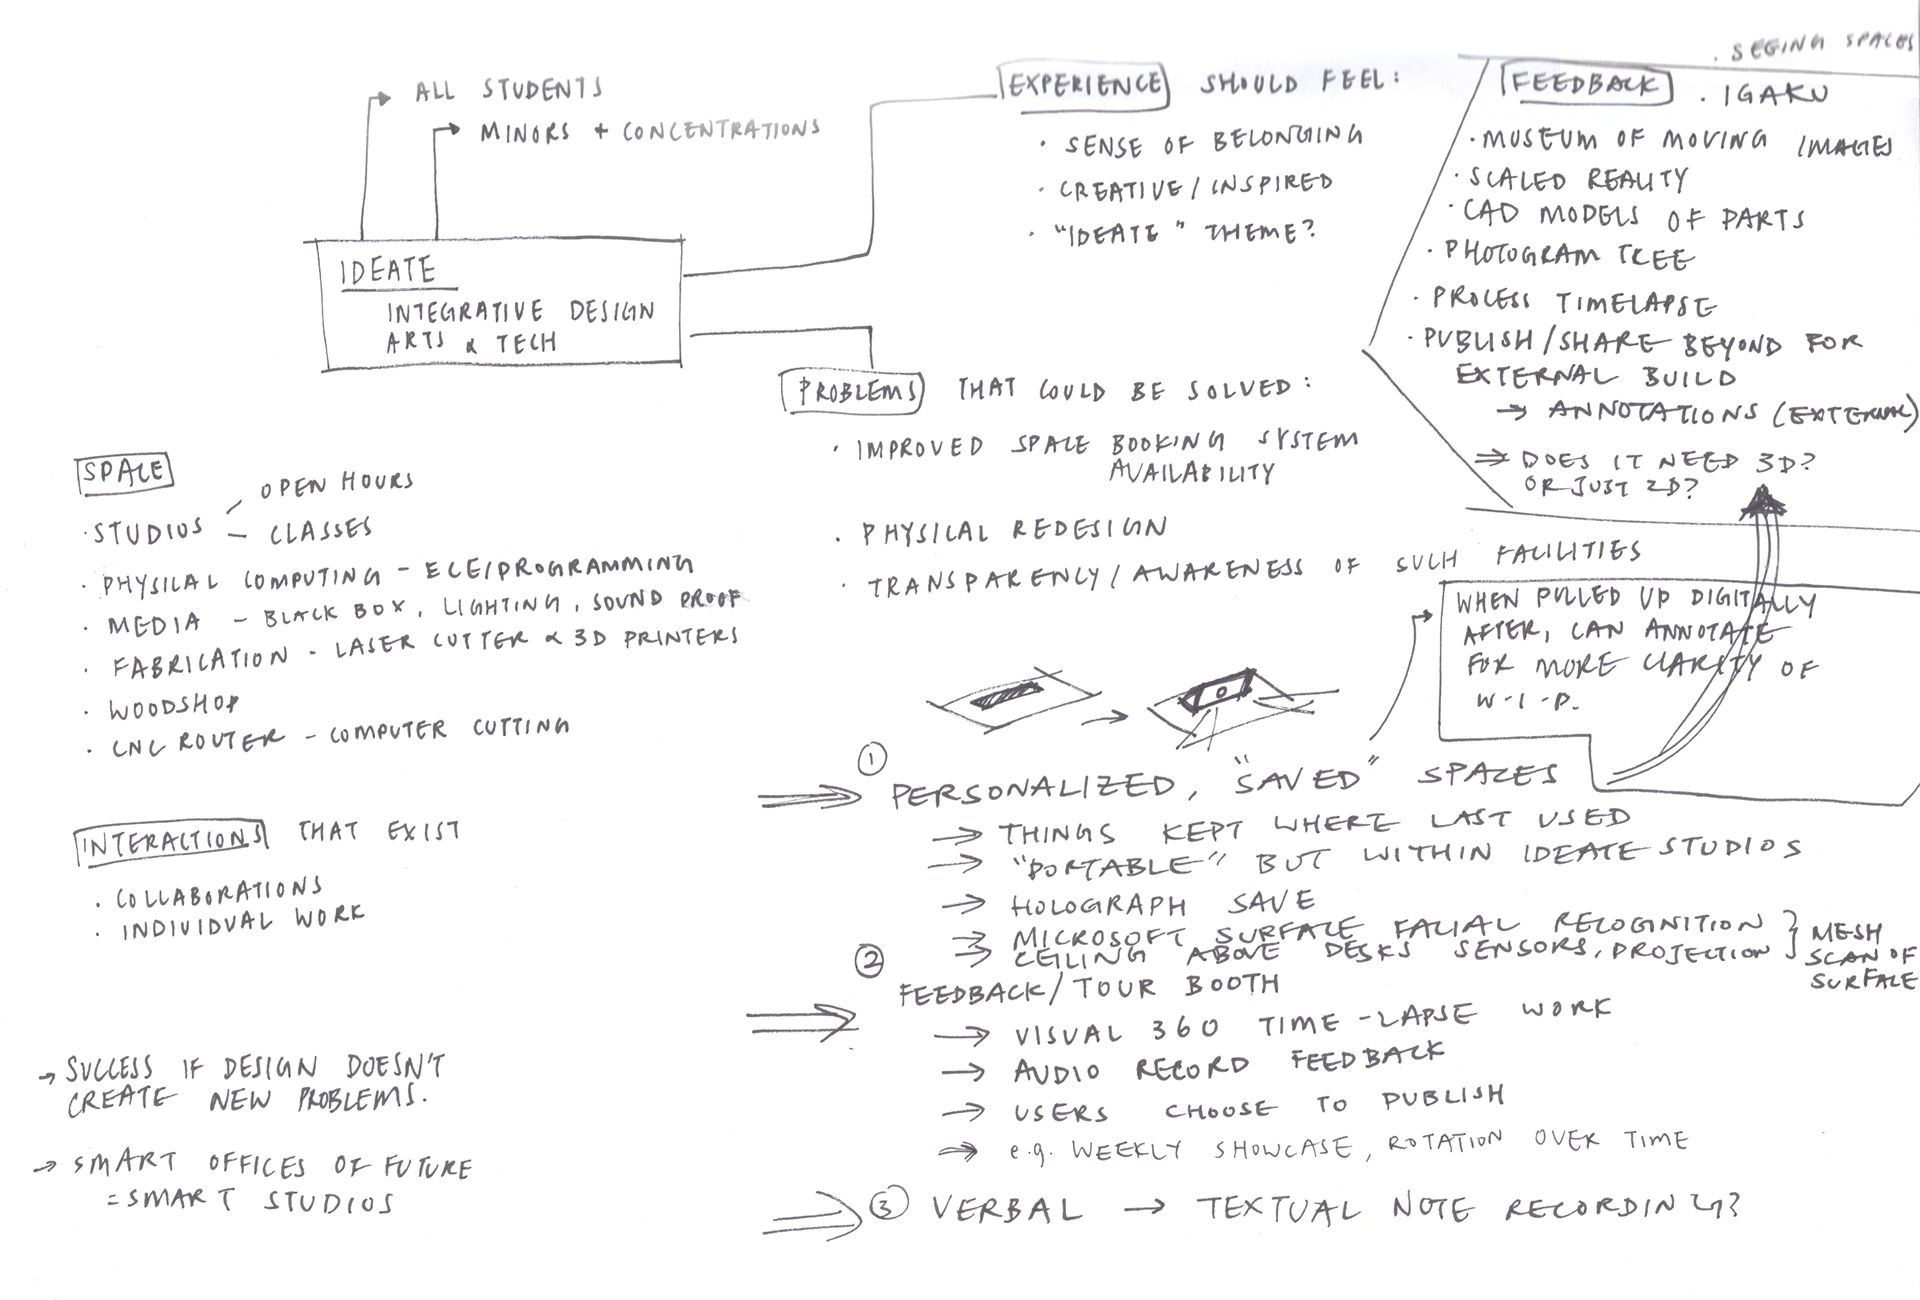 ALL STUDENTS
MINORS + CONCENTRATIONS
IDEATE
INTEGRATIVE DESIGN
ARTS & TECH
EXPERIENCE SHOULD FEEL:
· SENSE OF BELONGING
· CREATIVE/INSPIRED
· "IDEATE" THEME?
. SEEING SPACES
FEEDBACK . IGAKU
· MUSEUM OF MOVING IMAGES
· SCALED REALITY
· CAD MODELS OF PARTS
· PHOTOGRAM TREE
· PROCESS TIMELAPSE
· PUBLISH/SHARE BEYOND FOR
EXTERNAL BUILD
→ ANNOTATIONS (EXTERNAL)
⇒ DOES IT NEED 3D?
OR JUST 2D?
PROBLEMS THAT COULD BE SOLVED:
· IMPROVED SPACE BOOKING SYSTEM
AVAILABILITY
· PHYSICAL REDESIGN
· TRANSPARENCY/AWARENESS OF SUCH FACILITIES
SPACE
· STUDIOS – OPEN HOURS
– CLASSES
· PHYSICAL COMPUTING – ECE/PROGRAMMING
· MEDIA – BLACK BOX, LIGHTING, SOUND PROOF
· FABRICATION - LASER CUTTER & 3D PRINTERS
· WOODSHOP
· CNC ROUTER – COMPUTER CUTTING
INTERACTIONS THAT EXIST
· COLLABORATIONS
· INDIVIDUAL WORK
→ SUCCESS IF DESIGN DOESN'T
CREATE NEW PROBLEMS.
→ SMART OFFICES OF FUTURE
= SMART STUDIOS
WHEN PULLED UP DIGITALLY
AFTER, CAN ANNOTATE
FOR MORE CLARITY OF
W-I-P.
① PERSONALIZED, "SAVED" SPACES
→ THINGS KEPT WHERE LAST USED
→ "PORTABLE" BUT WITHIN IDEATE STUDIOS
→ HOLOGRAPH SAVE
→ MICROSOFT SURFACE FACIAL RECOGNITION
→ CEILING ABOVE DESKS SENSORS, PROJECTION
MESH
SCAN OF
SURFACE
② FEEDBACK/TOUR BOOTH
→ VISUAL 360 TIME-LAPSE WORK
→ AUDIO RECORD FEEDBACK
→ USERS CHOOSE TO PUBLISH
→ e.g. WEEKLY SHOWCASE, ROTATION OVER TIME
③ VERBAL → TEXTUAL NOTE RECORDING?